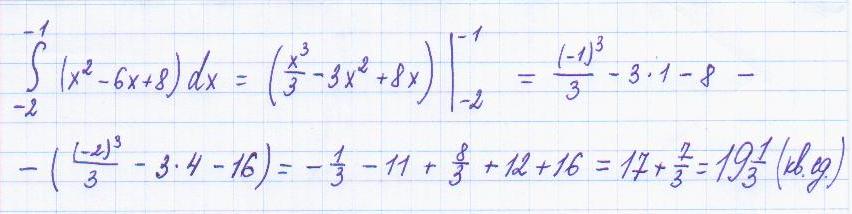 ∫₋₂⁻¹ (x² - 6x + 8) dx = (x³/3 - 3x² + 8x) |₋₂⁻¹ = (-1)³/3 - 3·1 - 8 -
- ((-2)³/3 - 3·4 - 16) = - 1/3 - 11 + 8/3 + 12 + 16 = 17 + 7/3 = 19 1/3 (кв. ед.)